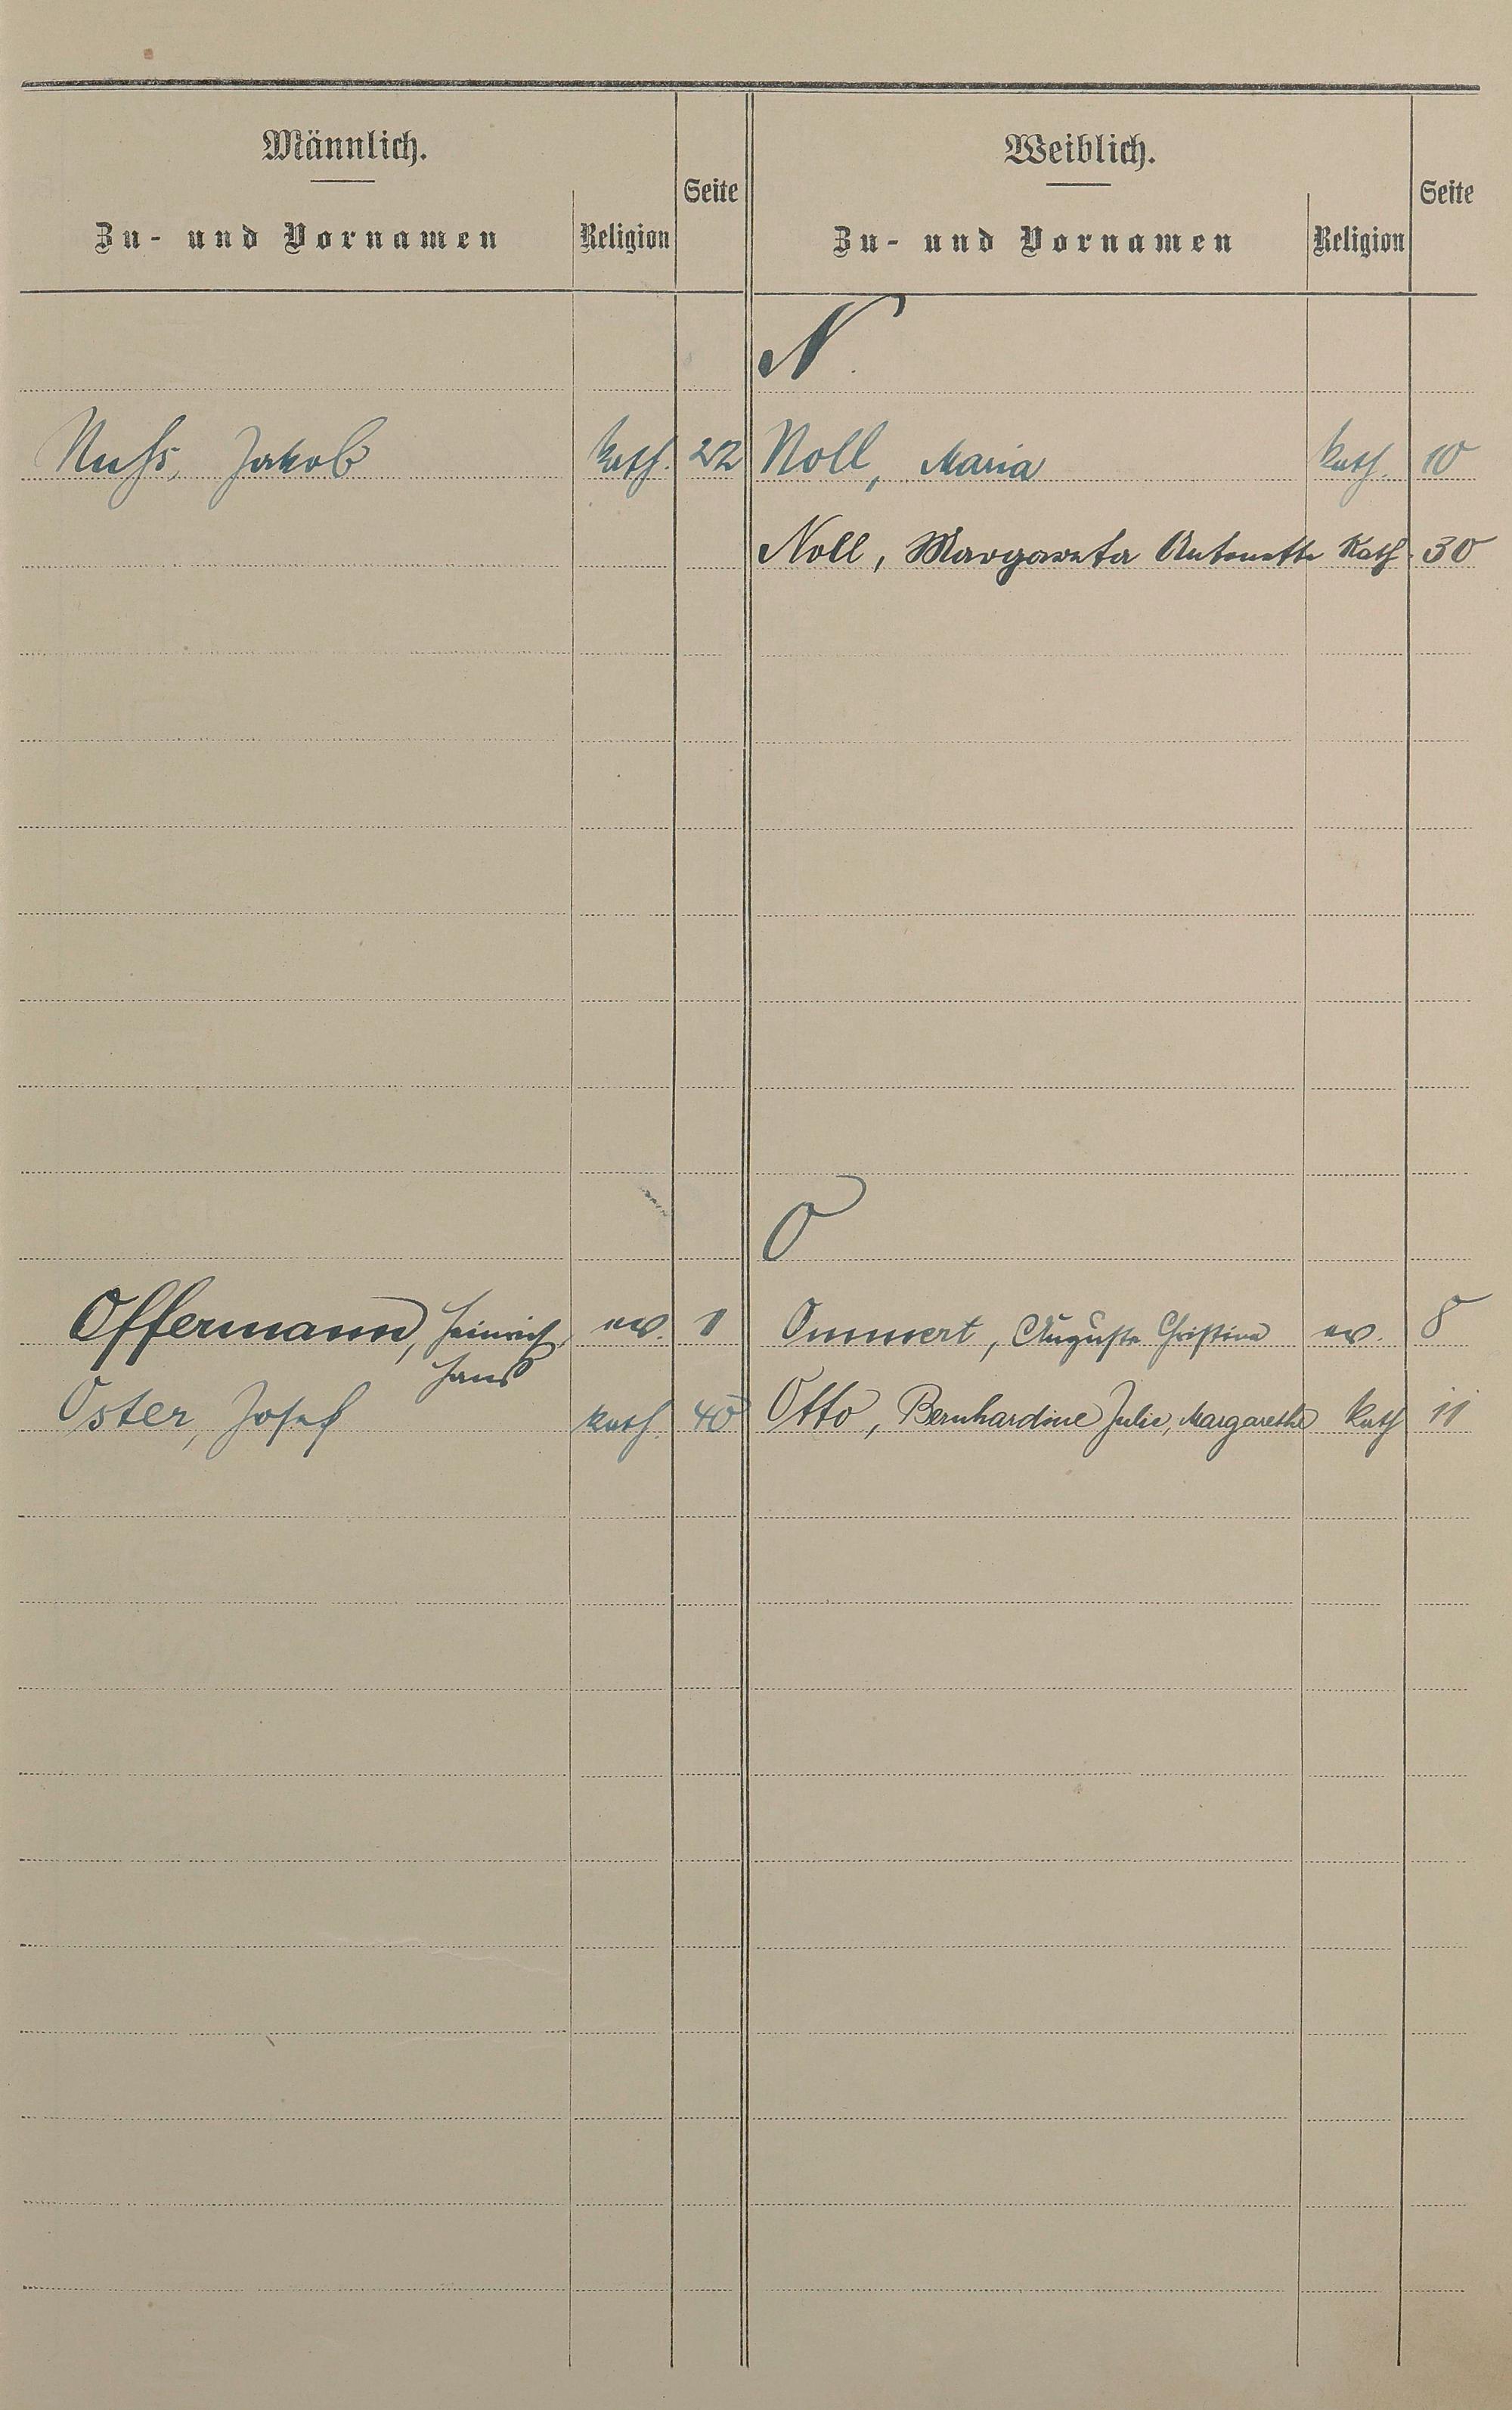 Männlich.
Zu- und Vornamen
Religion
Seite
Weiblich.
Zu- und Vornamen
Religion
Seite
N
Nuſs, Jakob kath. 22 Noll, Maria kath. 10
Noll, Margareta Antonette Kath. 30
O
Offermann, Heinrich ev. 1 Ommert, Auguste Christina ev. 8
Hans
Oster, Josef kath. 40 Otto, Bernhardine Julie, Margarethe kath 11